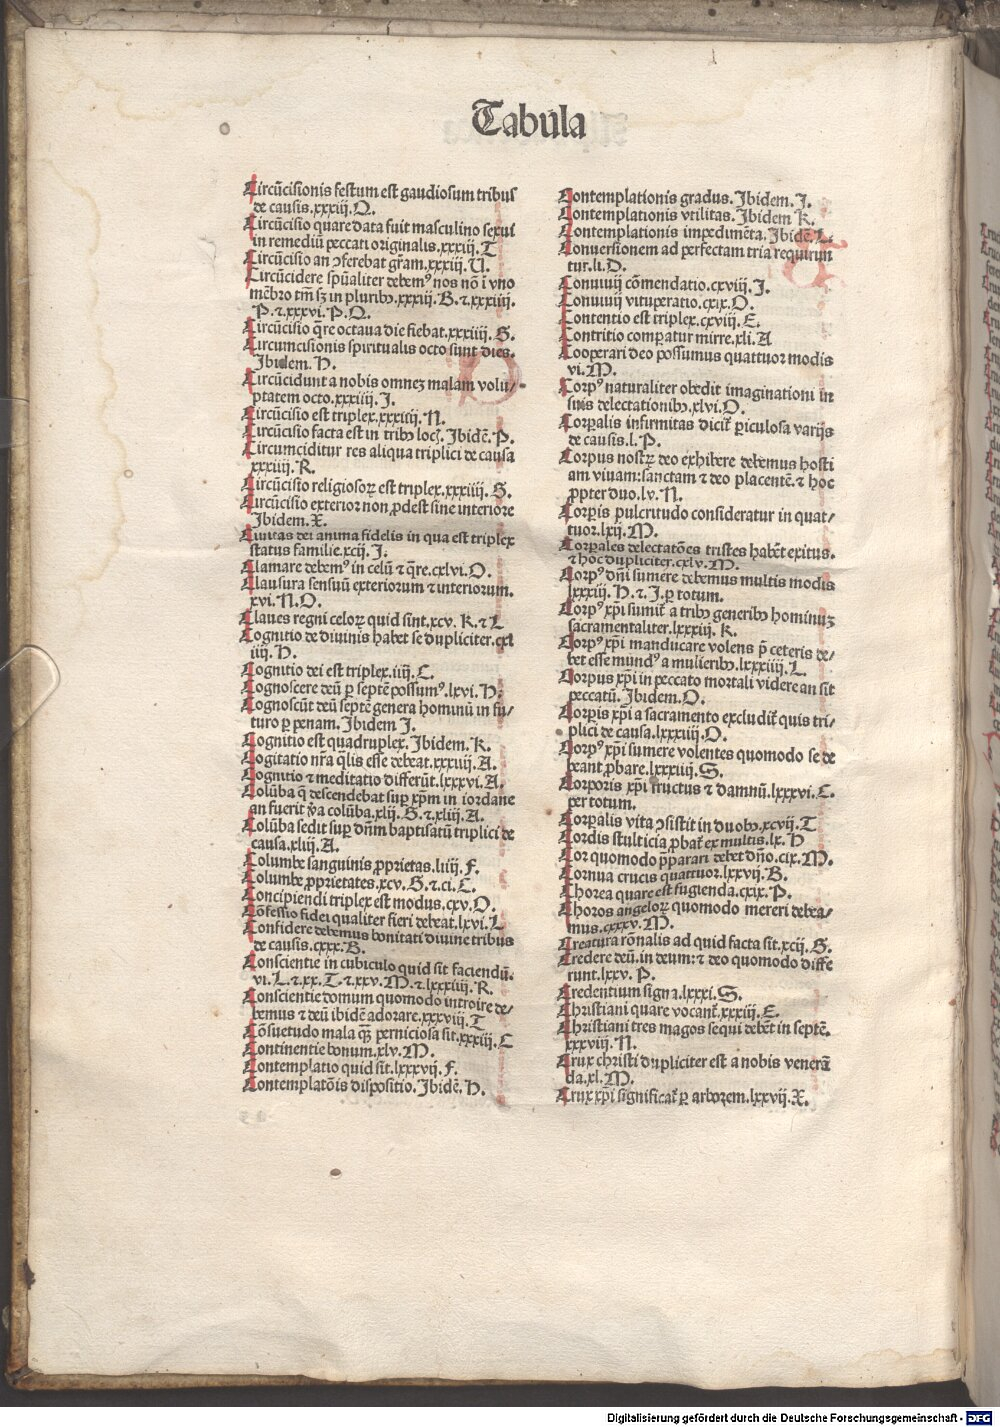 Tabula
Circũcisionis festum est gaudiosum tribus
de causis.xxxiij.O.
Circũcisio quare data fuit masculino sexui
in remediũ peccati originalis.xxxiij.T
Circũcisio an ɔferebat grãm.xxxiij.U.
Circũcidere spũaliter debemꝰ nos nõ ĩ vno
mẽbro tm̃ sꝫ in pluribꝰ.xxxiij.B.⁊.xxxiiij.
P.⁊.xxxvi.P.Q.
Circũcisio q̃re octaua die fiebat.xxxiiij.S.
Circumcisionis spiritualis octo sunt dies.
Ibidem.H.
Circũcidunt a nobis omneꝫ malam volu/
ptatem octo.xxxiiij.I.
Circũcisio est triplex.xxxiiij.N.
Circũcisio facta est in tribꝰ locꝭ.Ibidẽ.P.
Circumciditur res aliqua triplici de causa
xxxiiij.R.
Circũcisio religiosoꝝ est triplex.xxxiiij.S.
Circũcisio exterior non ꝓdest sine interiore
Ibidem.X.
Ciuitas dei anima fidelis in qua est triplex
status familie.xcij.I.
Clamare debemꝰ in celũ ⁊ q̃re.cxlvi.O.
Clausura sensuũ exteriorum ⁊ interiorum.
xvi.N.O.
Claues regni celoꝝ quid sint.xcv.K.⁊ L
Cognitio de diuinis habet se dupliciter.cxl
iiij.H.
Cognitio dei est triplex.iiij.C.
Cognoscere deũ ꝑ septẽ possumꝰ.lxvi.H.
Cognoscũt deũ septẽ genera hominũ in fu/
turo ꝑ penam.Ibidem I.
Cognitio est quadruplex.Ibidem.K.
Cogitatio nr̃a q̃lis esse debeat.xxxviij.A.
Cognitio ⁊ meditatio differũt.lxxxvi.A.
Colũba q̃ descendebat suꝑ xp̃m in iordane
an fuerit ꝟa colũba.xlij.S.⁊.xliij.A.
Colũba sedit suꝑ dñm baptisatũ triplici de
causa.xliij.A.
Columbe sanguinis ꝓprietas.liiij.F.
Columbe ꝓprietates.xcv.S.⁊.ci.C.
Concipiendi triplex est modus.cxv.O.
Cõfessio fidei qualiter fieri debeat.lxvi.L
Confidere debemus bonitati diuine tribus
de causis.cxxx.B.
Conscientie in cubiculo quid sit faciendũ.
vi.L.⁊.xx.T.⁊.xxv.M.⁊.lxxxiiij.R.
Conscientie domum quomodo introire de/
bemus ⁊ deũ ibidẽ adorare.xxxviij.T
Cõsuetudo mala qꝫ̃ perniciosa sit.xxxiij.C
Continentie bonum.xlv.M.
Contemplatio quid sit.lxxxvij.F.
Contemplatõis dispositio.Ibidẽ.H.
Contemplationis gradus.Ibidem.I.
Contemplationis vtilitas.Ibidem K.
Contemplationis impedimẽta.Ibidẽ.L.
Conuersionem ad perfectam tria requirun
tur.li.D.
Conuiuij cõmendatio.cxviij.I.
Conuiuij vituperatio.cxix.O.
Contentio est triplex.cxviij.E.
Contritio comꝑatur mirre.xli.A
Cooperari deo possumus quattuor modis
vi.M.
Corpꝰ naturaliter obedit imaginationi in
suis delectationibꝰ.xlvi.O.
Corꝑalis infirmitas dicit̃ ꝑiculosa varijs
de causis.l.P.
Corpus nostꝝ deo exhibere debemus hosti
am viuam:sanctam ⁊ deo placentẽ.⁊ hoc
ꝓpter duo.lv.N.
Corꝑis pulcritudo consideratur in quat/
tuor.lxij.M.
Corꝑales delectatões tristes habẽt exitus.
⁊ hoc dupliciter.cxlv.M.
Corpꝰ dñi sumere debemus multis modis
lxxxiij.H.⁊.I.ꝑ totum.
Corpꝰ xp̃i sumit̃ a tribꝰ generibꝰ hominuꝫ
sacramentaliter.lxxxiij.K.
Corpꝰ xp̃i manducare volens p̃ ceteris de/
bet esse mundꝰ a mulieribꝰ.lxxxiiij.L.
Corpus xp̃i in peccato mortali videre an sit
peccatũ.Ibidem.O.
Corꝑis xp̃i a sacramento excludit̃ quis tri/
plici de causa.lxxxiiij.O.
Corpꝰ xp̃i sumere volentes quomodo se de
beant ꝓbare.lxxxiiij.S.
Corporis xp̃i fructus ⁊ damnũ.lxxxvi.C.
per totum.
Corꝑalis vita ɔsistit in duobꝰ.xcvij.T
Cordis stulticia ꝓbat̃ ex multis.lx.H
Cor quomodo p̃parari debet dño.cix.M.
Cornua crucis quattuor.lxxvij.B.
Chorea quare est fugienda.cxix.P.
Choros angeloꝝ quomodo mereri debea/
mus.cxxxv.M.
Creatura rõnalis ad quid facta sit.xcij.S.
Credere deũ.in deum:⁊ deo quomodo diffe
runt.lxxv.P.
Credentium signa.lxxxi.S.
Christiani quare vocant̃.xxxiij.E.
Christiani tres magos sequi debẽt in septẽ.
xxxviij.N.
Crux christi dupliciter est a nobis venerã
da.xl.M.
Crux xp̃i significat̃ ꝑ arborem.lxxvij.X.
Digitalisierung gefördert durch die Deutsche Forschungsgemeinschaft - DFG